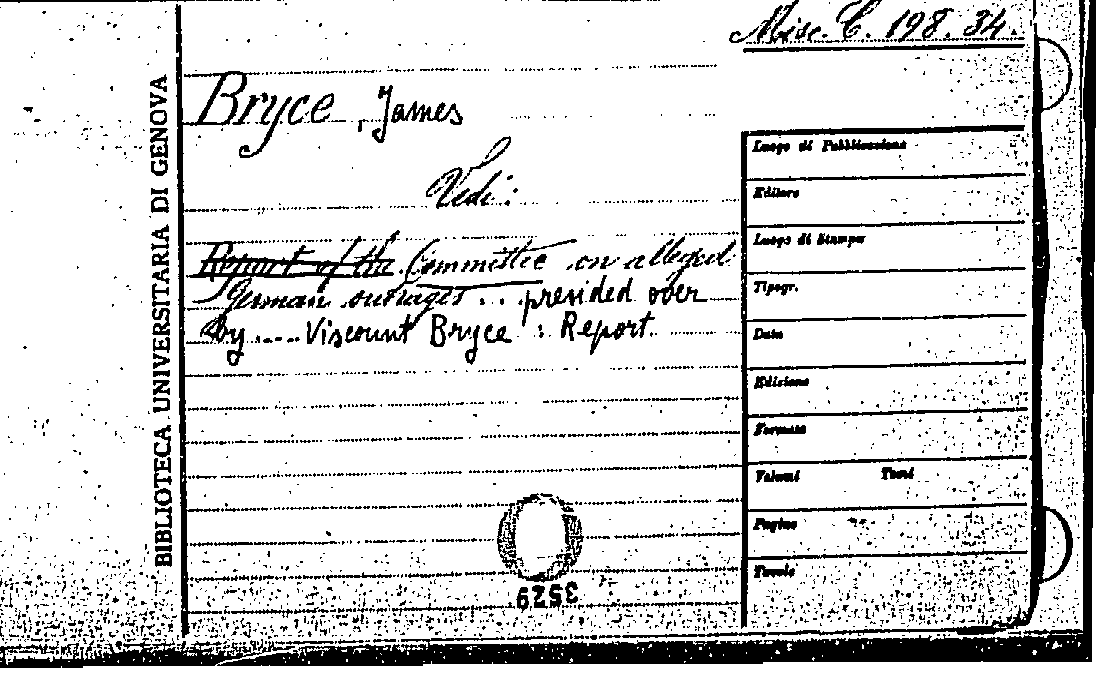 Misc. C. 198. 34.
BIBLIOTECA UNIVERSITARIA DI GENOVA
Bryce, James
Vedi:
Report of the Committee on alleged
German outrages .. presided over
by .... Viscount Bryce : Report.
Luogo di Pubblicazione
Editore
Luogo di Stampa
Tipogr.
Data
Edizione
Formato
Volumi Tomi
Pagine
Tavole
3529